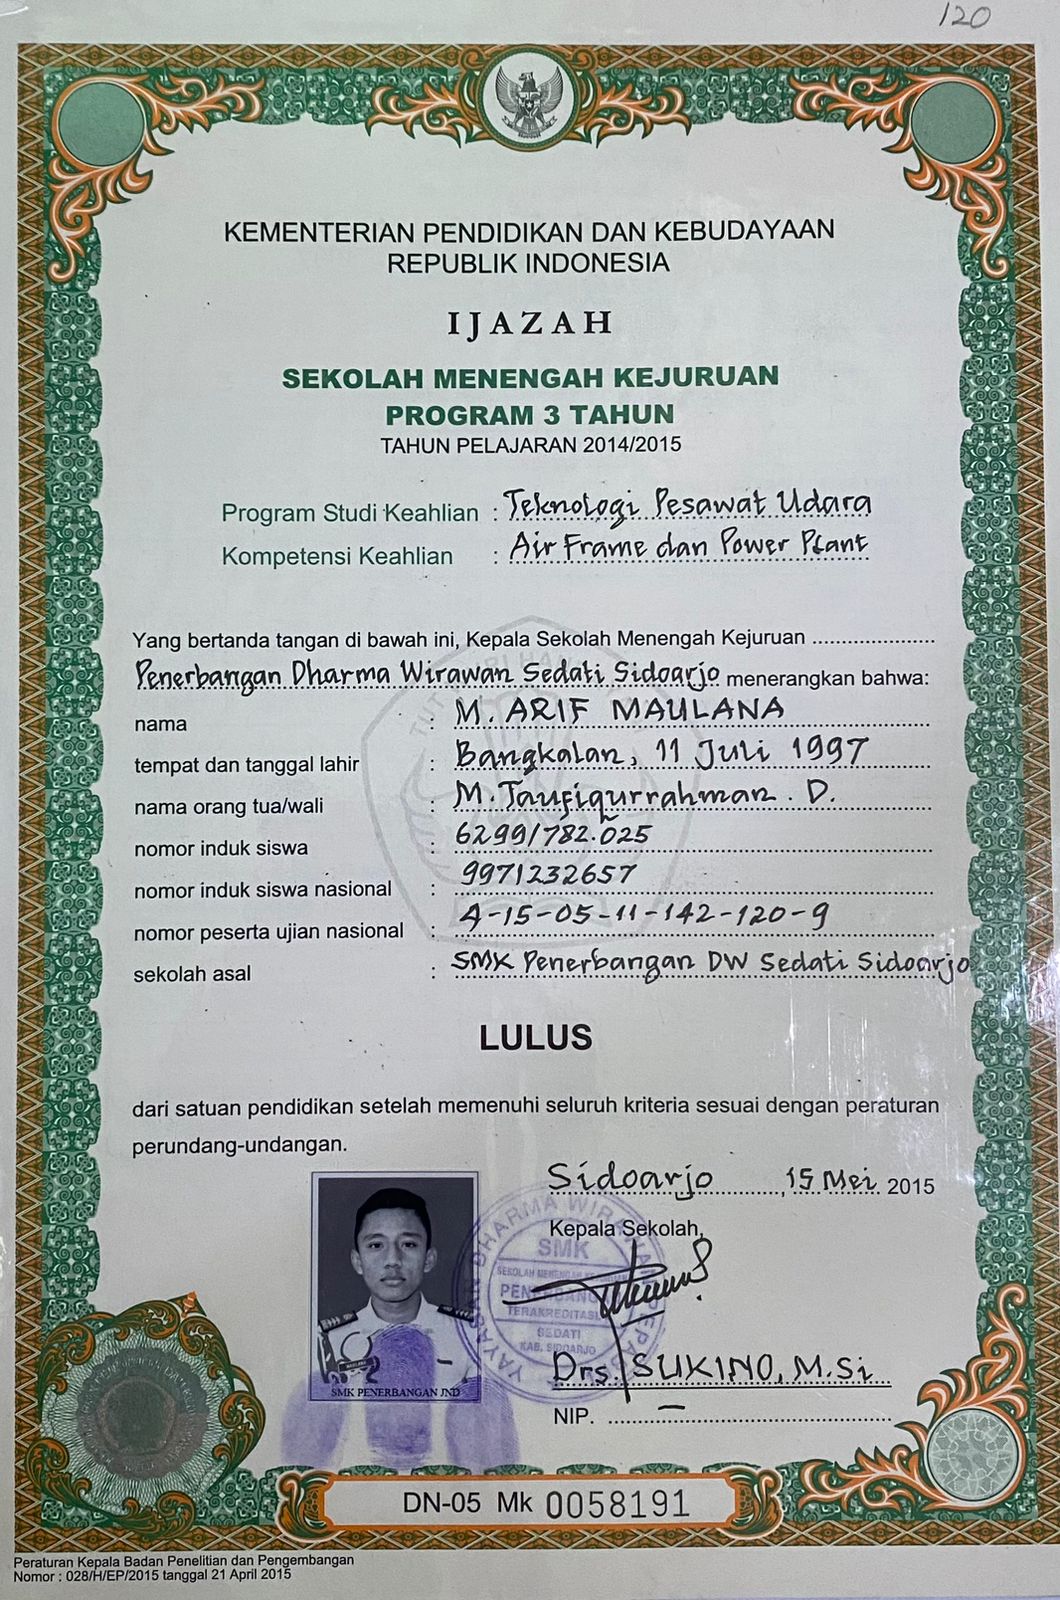 120
KEMENTERIAN PENDIDIKAN DAN KEBUDAYAAN
REPUBLIK INDONESIA
IJAZAH
SEKOLAH MENENGAH KEJURUAN
PROGRAM 3 TAHUN
TAHUN PELAJARAN 2014/2015
Program Studi Keahlian : Teknologi Pesawat Udara
Kompetensi Keahlian : Air Frame dan Power Plant
Yang bertanda tangan di bawah ini, Kepala Sekolah Menengah Kejuruan
Penerbangan Dharma Wirawan Sedati Sidoarjo menerangkan bahwa:
nama : M. ARIF MAULANA
tempat dan tanggal lahir : Bangkalan, 11 Juli 1997
nama orang tua/wali : M. Taufiqurrahman . D.
nomor induk siswa : 6299/782.025
nomor induk siswa nasional : 9971232657
nomor peserta ujian nasional : 4-15-05-11-142-120-9
sekolah asal : SMK Penerbangan DW Sedati Sidoarjo
LULUS
dari satuan pendidikan setelah memenuhi seluruh kriteria sesuai dengan peraturan
perundang-undangan.
Sidoarjo, 15 Mei 2015
Kepala Sekolah,
DHARMA WIRAWAN
SMK
TERAKREDITASI
SEDATI
KAB. SIDOARJO
Drs. SUKINO, M.Si
NIP. –
SMK PENERBANGAN JND
DN-05 Mk 0058191
Peraturan Kepala Badan Penelitian dan Pengembangan
Nomor : 028/H/EP/2015 tanggal 21 April 2015